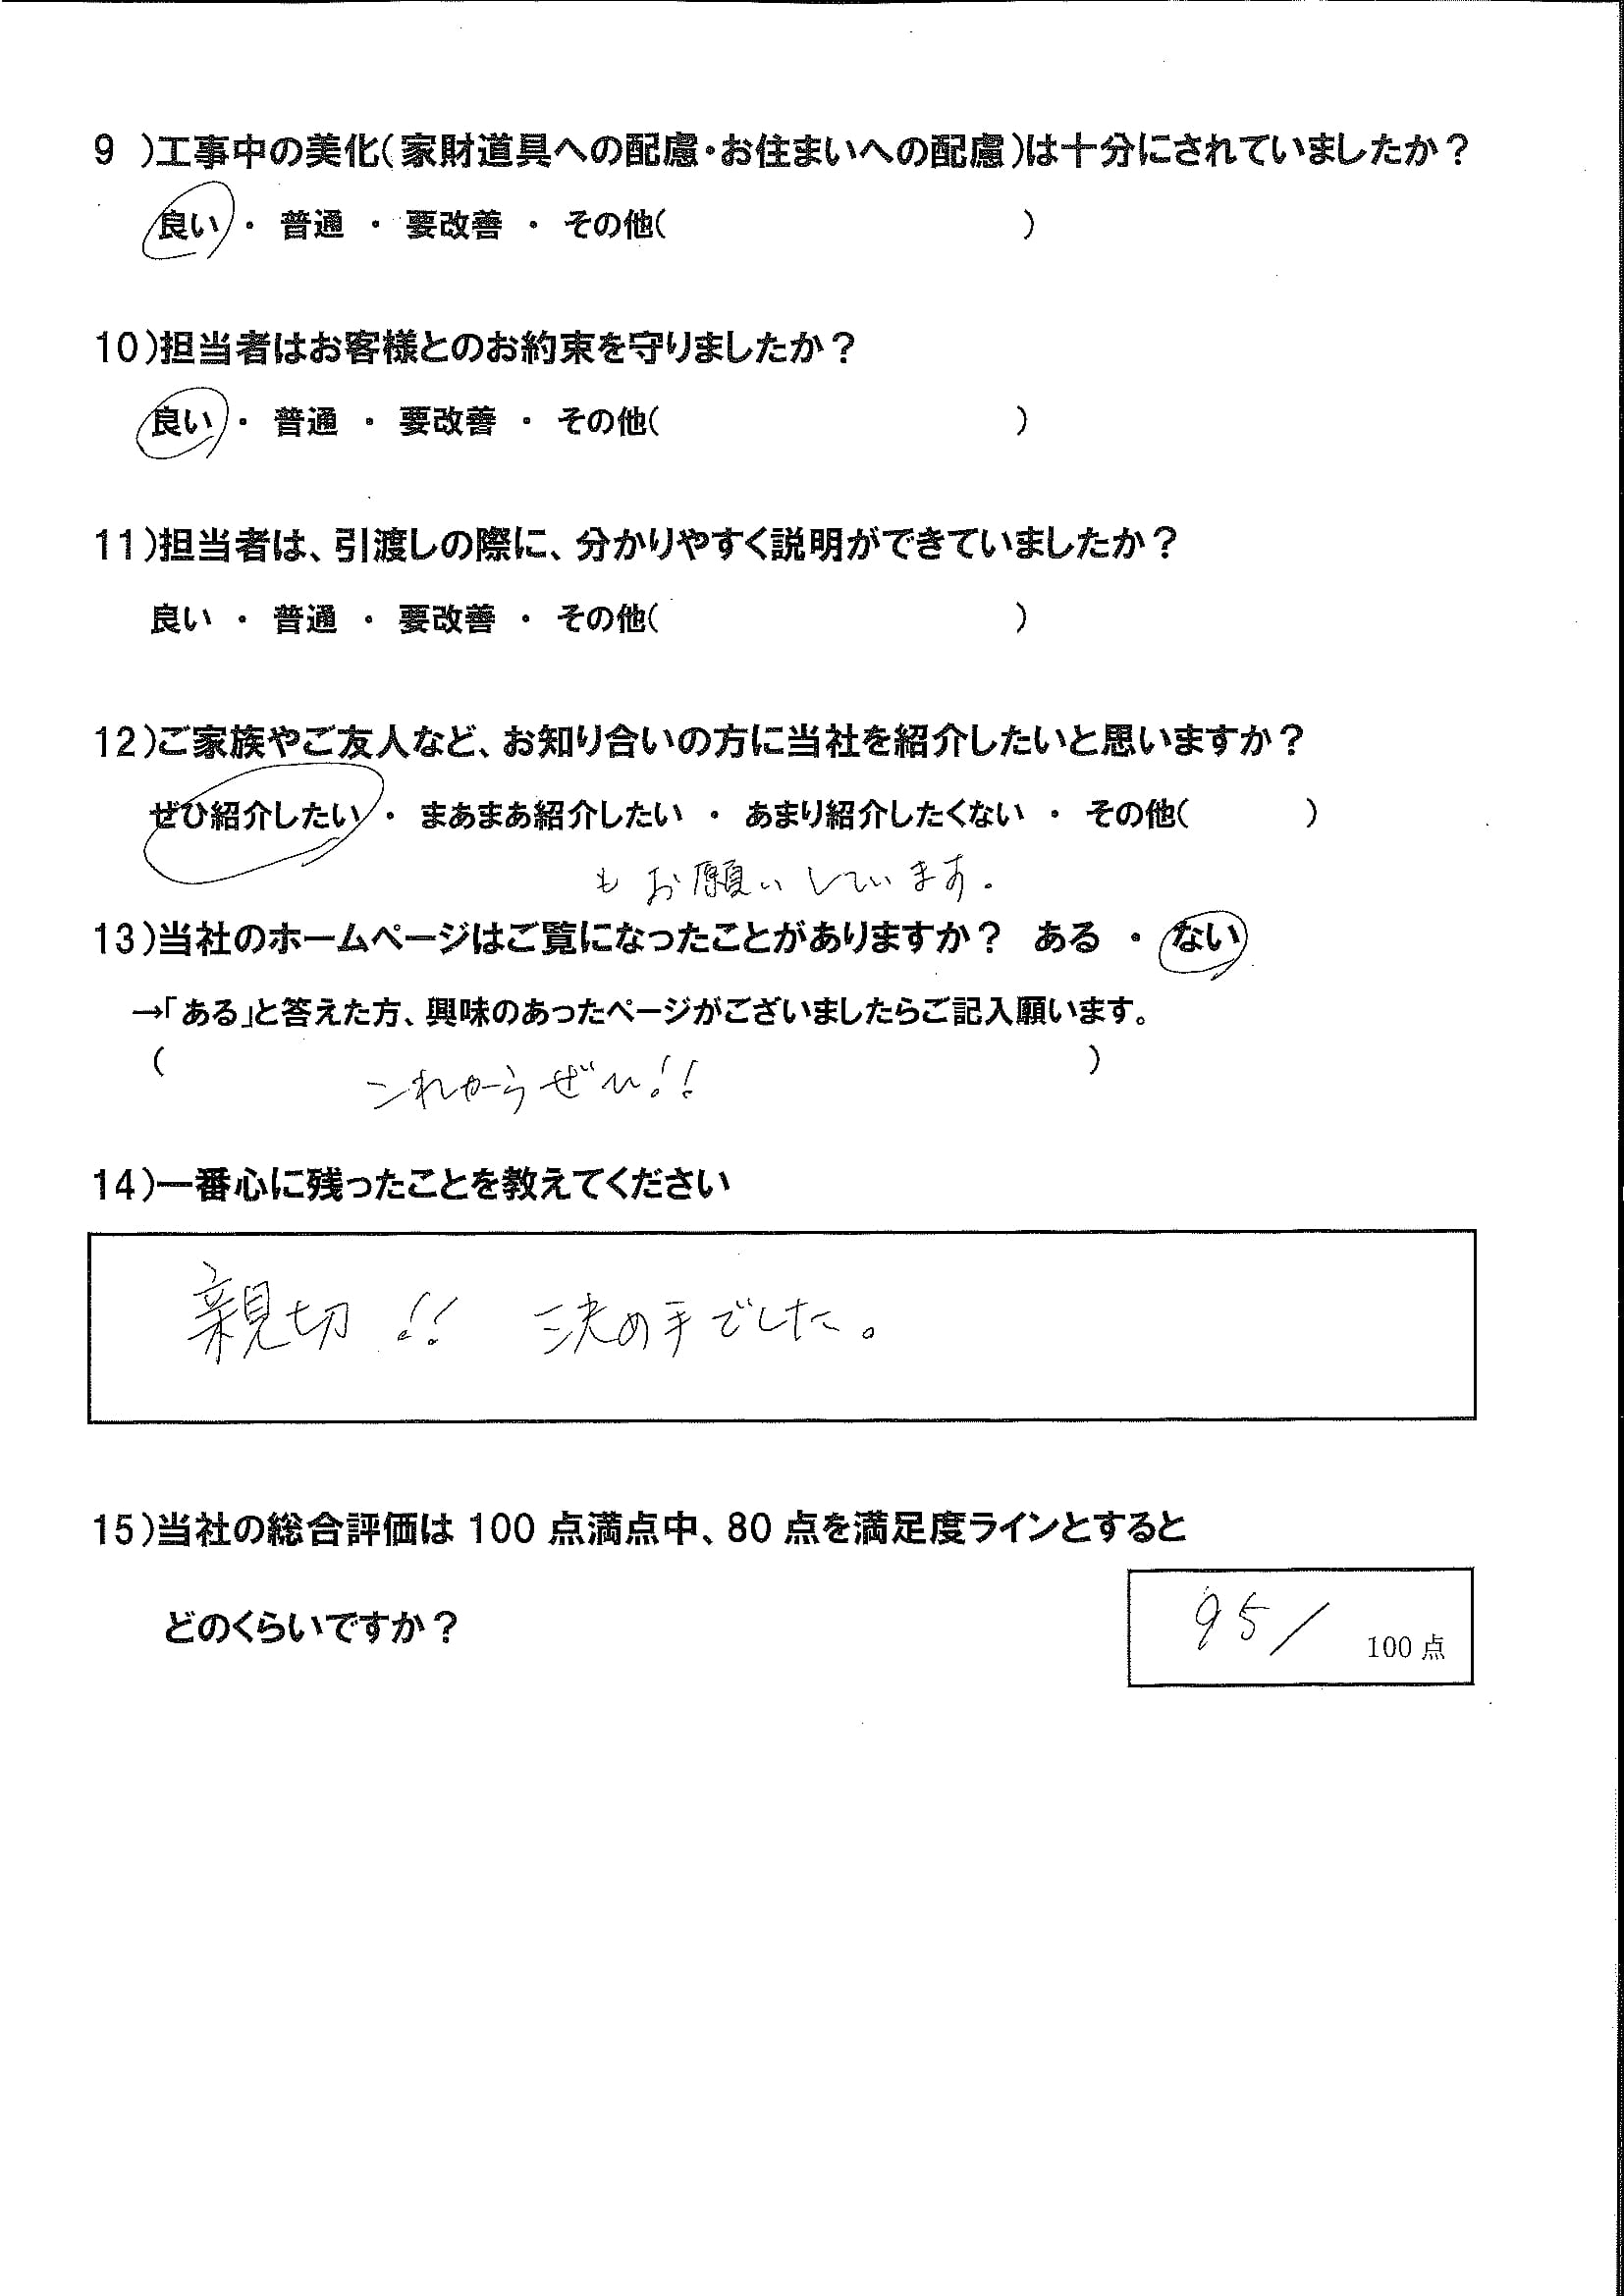 9 )工事中の美化(家財道具への配慮・お住まいへの配慮)は十分にされていましたか？
良い ・ 普通 ・ 要改善 ・ その他( )
10)担当者はお客様とのお約束を守りましたか？
良い ・ 普通 ・ 要改善 ・ その他( )
11)担当者は、引渡しの際に、分かりやすく説明ができていましたか？
良い ・ 普通 ・ 要改善 ・ その他( )
12)ご家族やご友人など、お知り合いの方に当社を紹介したいと思いますか？
ぜひ紹介したい ・ まあまあ紹介したい ・ あまり紹介したくない ・ その他( )
もお願いしています.
13)当社のホームページはご覧になったことがありますか？ ある ・ ない
→「ある」と答えた方、興味のあったページがございましたらご記入願います。
( )
これからぜひ!!
14)一番心に残ったことを教えてください
親切!! 決め手でした。
15)当社の総合評価は 100 点満点中、80 点を満足度ラインとすると
どのくらいですか？
95/ 100 点